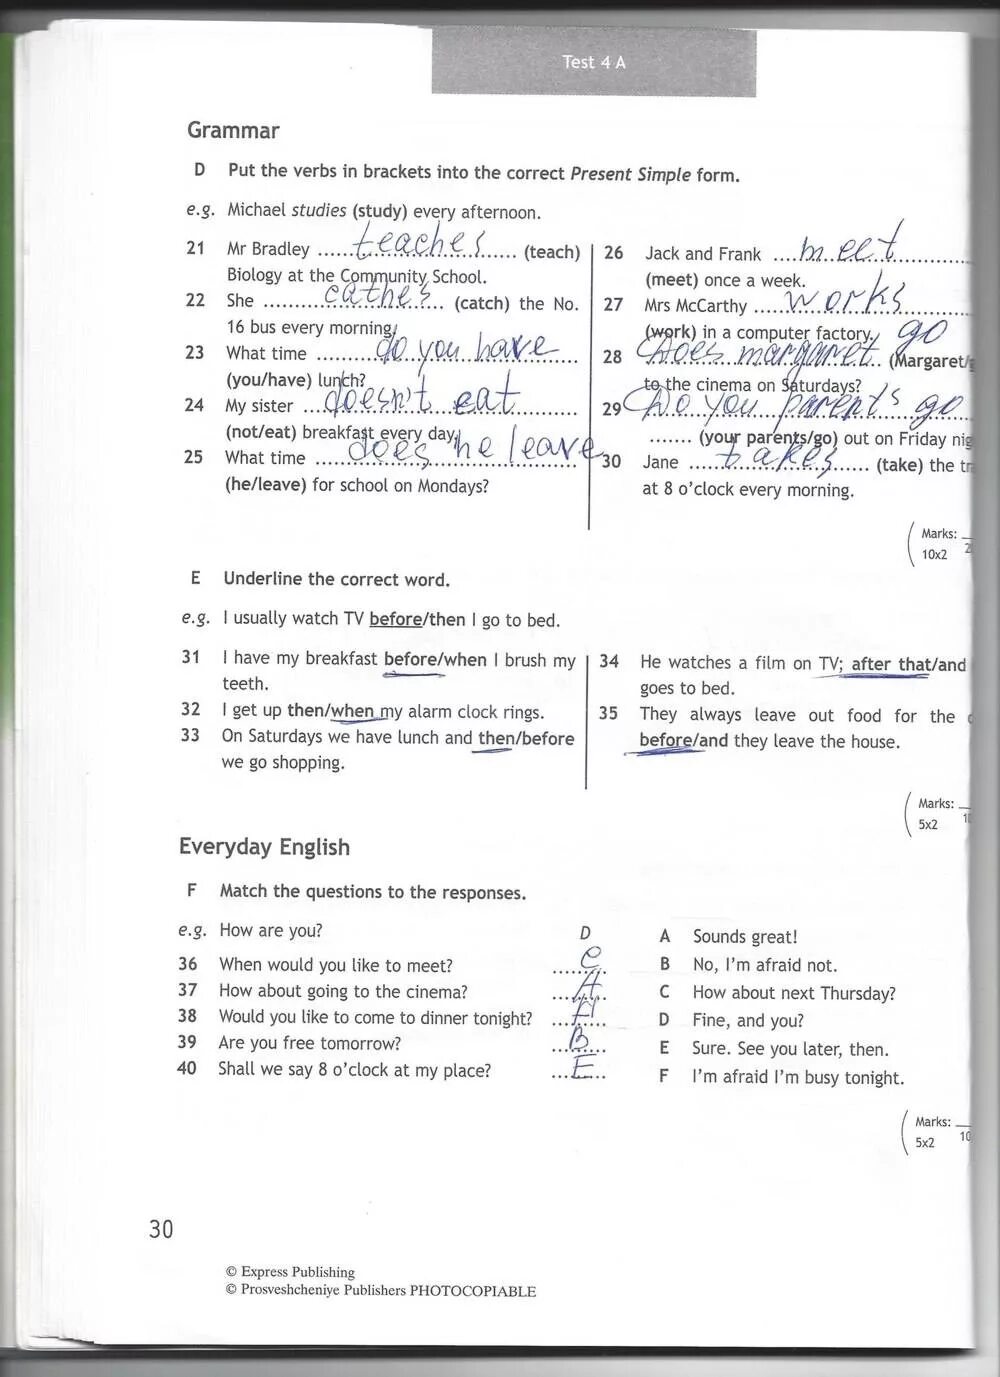 Test 4 A
Grammar
D Put the verbs in brackets into the correct Present Simple form.
e.g. Michael studies (study) every afternoon.
21 Mr Bradley ......teaches...... (teach)
Biology at the Community School.
22 She ......cathes...... (catch) the No.
16 bus every morning.
23 What time ......do you have......
(you/have) lunch?
24 My sister ...doesn't eat......
(not/eat) breakfast every day.
25 What time ......does he leave
(he/leave) for school on Mondays?
26 Jack and Frank ....meet......
(meet) once a week.
27 Mrs McCarthy ......works......
(work) in a computer factory.
28 Does margaret go (Margaret/
to the cinema on Saturdays?
29 Do you parents go
....... (your parents/go) out on Friday
30 Jane ......takes...... (take) the
at 8 o'clock every morning.
Marks: __
10x2
E Underline the correct word.
e.g. I usually watch TV before/then I go to bed.
31 I have my breakfast before/when I brush my
teeth.
32 I get up then/when my alarm clock rings.
33 On Saturdays we have lunch and then/before
we go shopping.
34 He watches a film on TV; after that/and
goes to bed.
35 They always leave out food for the
before/and they leave the house.
Marks: __
5x2
Everyday English
F Match the questions to the responses.
e.g. How are you? D
36 When would you like to meet? C
37 How about going to the cinema? A
38 Would you like to come to dinner tonight?
39 Are you free tomorrow? B
40 Shall we say 8 o'clock at my place? E
A Sounds great!
B No, I'm afraid not.
C How about next Thursday?
D Fine, and you?
E Sure. See you later, then.
F I'm afraid I'm busy tonight.
Marks: __
5x2 10
30
© Express Publishing
© Prosveshcheniye Publishers PHOTOCOPIABLE